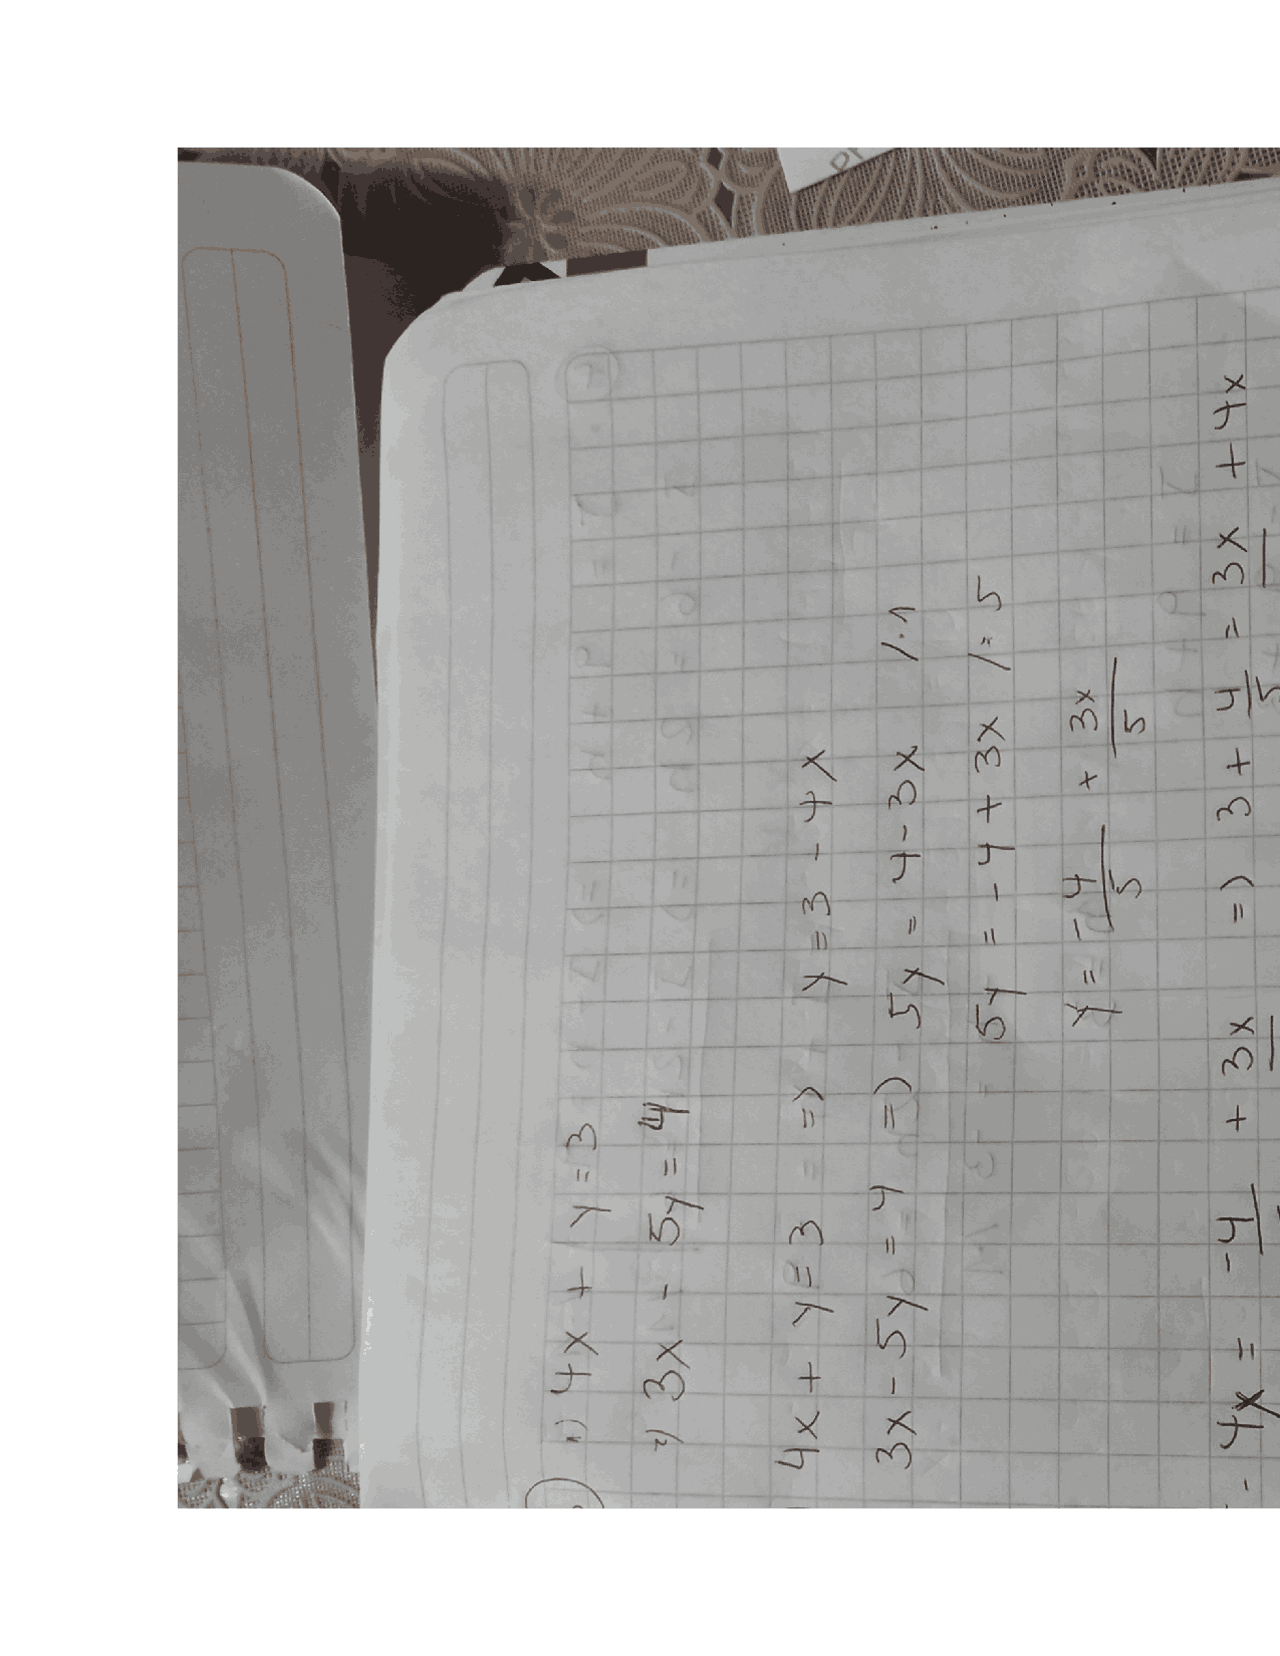 1) 4x + y = 3
2) 3x - 5y = 4
4x + y = 3 => y = 3 - 4x
3x - 5y = 4 => 5y = 4 - 3x /·1
5y = -4 + 3x /: 5
y = -4/5 + 3x/5
- 4x = -4 + 3x => 3 + 4/5 = 3x + 4x